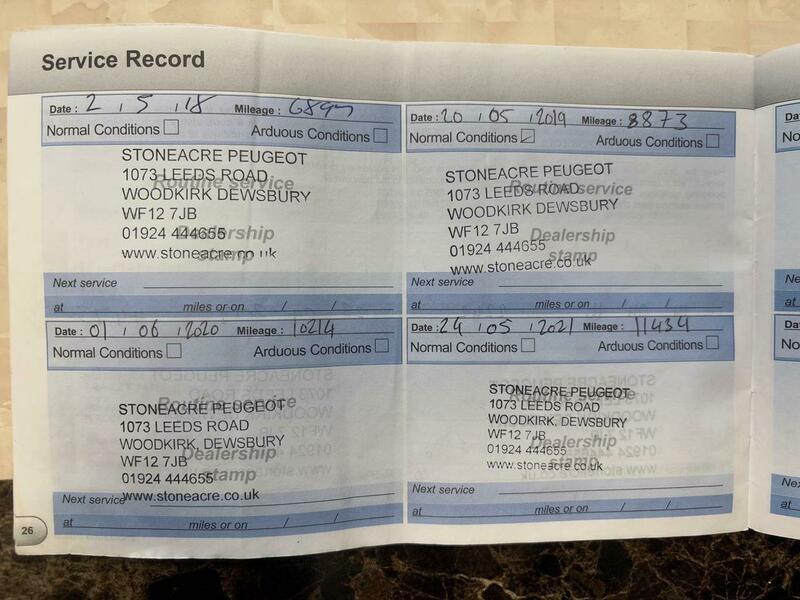 Service Record
Date : 2 . 5 . 18 Mileage : 6897
Normal Conditions Arduous Conditions
STONEACRE PEUGEOT
1073 LEEDS ROAD
Routine service
WOODKIRK DEWSBURY
WF12 7JB
01924 444655
Dealership
www.stoneacre.co.uk
stamp
Next service
at miles or on / /
Date : 20 . 05 . 2019 Mileage : 8873
Normal Conditions Arduous Conditions
STONEACRE PEUGEOT
1073 LEEDS ROAD
Routine service
WOODKIRK DEWSBURY
WF12 7JB
Dealership
01924 444655
stamp
www.stoneacre.co.uk
Next service
at miles or on / /
Date : 01 . 06 . 2020 Mileage : 10214
Normal Conditions Arduous Conditions
STONEACRE PEUGEOT
Routine service
1073 LEEDS ROAD
WOODKIRK, DEWSBURY
WF12 7JB
Dealership
01924 444655
stamp
www.stoneacre.co.uk
Next service
at miles or on / /
Date : 24 . 05 . 2021 Mileage : 11434
Normal Conditions Arduous Conditions
STONEACRE PEUGEOT
Routine service
1073 LEEDS ROAD
WOODKIRK, DEWSBURY
WF12 7JB
Dealership
01924 444655
stamp
www.stoneacre.co.uk
Next service
at miles or on / /
26